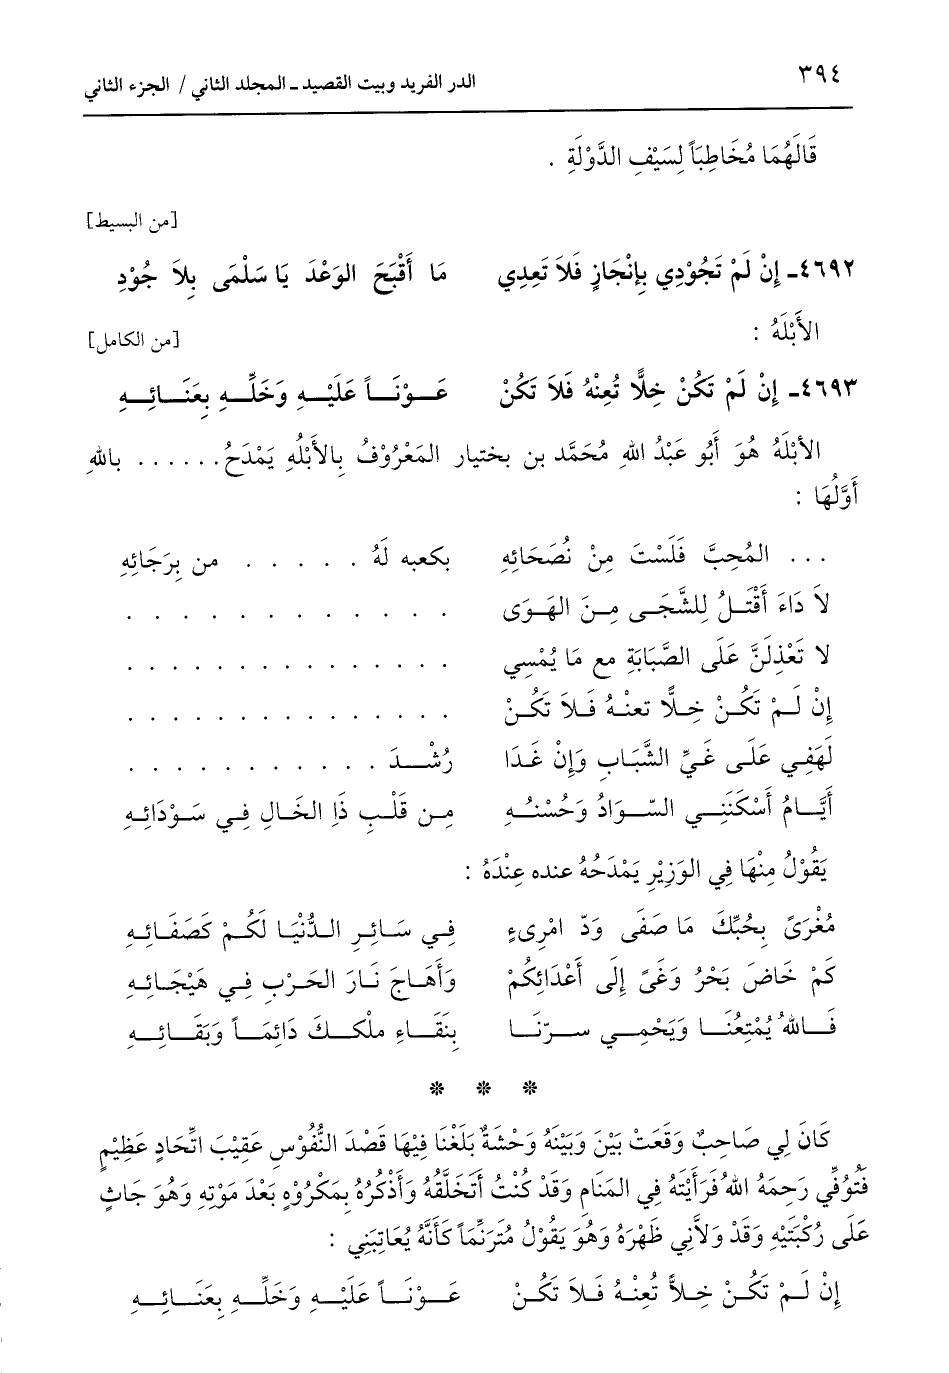 ٣٩٤ الدر الفريد وبيت القصيد ـ المجلد الثاني / الجزء الثاني
قَالَهُمَا مُخَاطِبَاً لِسَيْفِ الدَّوْلَةِ .
[من البسيط]
٤٦٩٢ـ إِنْ لَمْ تَجُوْدِي بِإِنْجَازٍ فَلاَ تَعِدِي مَا أَقْبَحَ الوَعْدَ يَا سَلْمَى بِلاَ جُوْدِ
الأَبْلَهُ :
[من الكامل]
٤٦٩٣ـ إِنْ لَمْ تَكُنْ خِلًّا تُعِنْهُ فَلاَ تَكُنْ عَوْنَاً عَلَيْهِ وَخَلِّهِ بِعَنَائِهِ
الأَبْلَهُ هُوَ أَبُو عَبْدُ اللهِ مُحَمَّد بن بختيار المَعْرُوْفُ بِالأَبْلُهِ يَمْدَحُ . . . . . . بالله
أَوَّلُهَا :
. . . المُحِبَّ فَلَسْتَ مِنْ نُصَحَائِهِ بكعبه لَهُ . . . . . من بِرَجَائِهِ
لاَ دَاءَ أَقْتَلُ لِلشَّجَى مِنَ الهَوَى . . . . . . . . . . . . . .
لا تَعْذِلَنَّ عَلَى الصَّبَابَةِ مع مَا يُمْسِي . . . . . . . . . . . . . .
إِنْ لَمْ تَكُنْ خِلًّا تعنْهُ فَلاَ تَكُنْ . . . . . . . . . . . . . .
لَهَفِي عَلَى غَيِّ الشَّبَابِ وَإِنْ غَدَا رُشْدَ . . . . . . . . . . .
أَيَّامُ أَسْكَنَنِي السّوَادُ وَحُسْنُهُ مِن قَلْبِ ذَا الخَالِ فِي سَوْدَائِهِ
يَقُوْلُ مِنْهَا فِي الوَزِيْرِ يَمْدَحُهُ عنده عِنْدَهُ :
مُغْرَىً بِحُبِّكَ مَا صَفَى وَدّ امْرِىءٍ فِي سَائِرِ الدُّنْيَا لَكُمْ كَصَفَائِهِ
كَمْ خَاضَ بَحْرُ وَغَىً إِلَى أَعْدَائِكُمْ وَأَهَاجَ نَارَ الحَرْبِ فِي هَيْجَائِهِ
فَاللهُ يُمْتِعُنَا وَيَحْمِي سرّنَا بِنَقَاءِ ملْكِكَ دَائِمَاً وَبَقَائِهِ
* * *
كَانَ لِي صَاحِبٌ وَقَعَتْ بَيْنَ وَبَيْنَهُ وَحْشَةٌ بَلَغْنَا فِيْهَا قَصْدَ النُّفُوْسِ عَقِيْبَ اتِّحَادٍ عَظِيْمٍ
فَتُوُفِّي رَحِمَهُ اللهُ فَرَأَيْتَهُ فِي المَنَامِ وَقَدْ كُنْتُ أَتَخَلَّقُهُ وَأَذْكُرُهُ بِمَكْرُوْهٍ بَعْدَ مَوْتِهِ وَهُوَ جَاثٍ
عَلَى رُكْبَتَيْهِ وَقَدْ وَلاَّنِي ظَهْرَهُ وَهُوَ يَقُوْلُ مُتَرَنِّمَاً كَأَنَّهُ يُعَاتِبَنِي :
إِنْ لَمْ تَكُنْ خِلاًّ تُعِنْهُ فَلاَ تَكُنْ عَوْنَاً عَلَيْهِ وَخَلِّهِ بِعَنَائِهِ